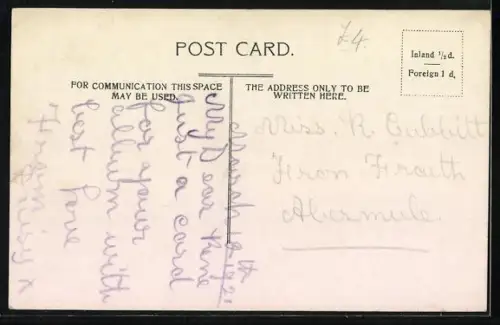 £4.
POST CARD.
Inland ½d.
Foreign 1d.
FOR COMMUNICATION THIS SPACE
MAY BE USED.
THE ADDRESS ONLY TO BE
WRITTEN HERE.
March 12th
My Dear Rene
Just a card
for your
allbum with
best love
From
x
Miss. R Cubbitt
Abermule.